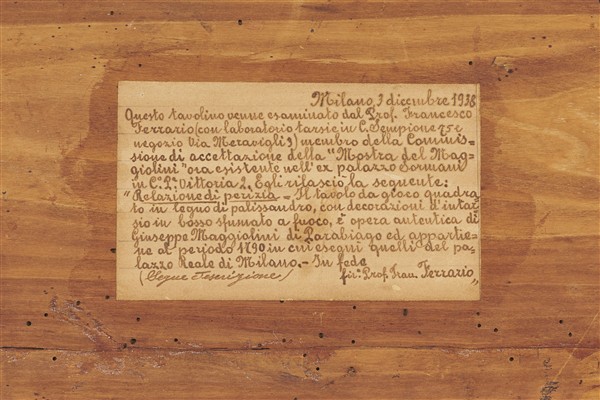 Milano, 3 dicembre 1938
Questo tavolino venne esaminato dal Prof. Francesco
Ferrario (con laboratorio tarsie in C. Sempione 75 e
negozio Via Meravigli 9) membro della Commis=
sione di accettazione della "Mostra del Mag=
giolini" ora esistente nell'ex palazzo Sormani
in C.o P.a Vittoria 2. Egli rilasciò la seguente:
"Relazione di perizia = Il tavolo da gioco quadra
to in legno di palissandro, con decorazioni d'intar
sio in bosso sfumato a fuoco, è opera autentica di
Giuseppe Maggiolini di Parabiago ed appartie=
ne al periodo 1790 in cui eseguì quelli del pa=
lazzo Reale di Milano. - In fede
(Segue descrizione) fir.o Prof. Fran. Ferrario"